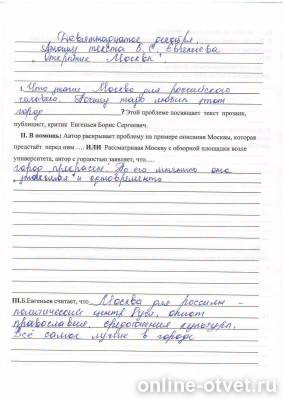 Девятнадцатое октября.
Анализ текста Б.С. Евгеньева
"Открытие Москвы"
I. Что такое Москва для российского
человека. Почему люди любят этот
город ? Этой проблеме посвящает текст прозаик,
публицист, критик Евгеньев Борис Сергеевич.
II. В помощь: Автор раскрывает проблему на примере описания Москвы, которая
предстаёт перед ним .... ИЛИ Рассматривая Москву с обзорной площадки возле
университета, автор с гордостью заявляет, что....
город прекрасен! По его мнению она
и одновременно
III.Б.Евгеньев считает, что Москва для россиян -
политический центр Руси, оплот
православия, средоточения культуры.
Всё самое лучшее в городе
online-otvet.ru